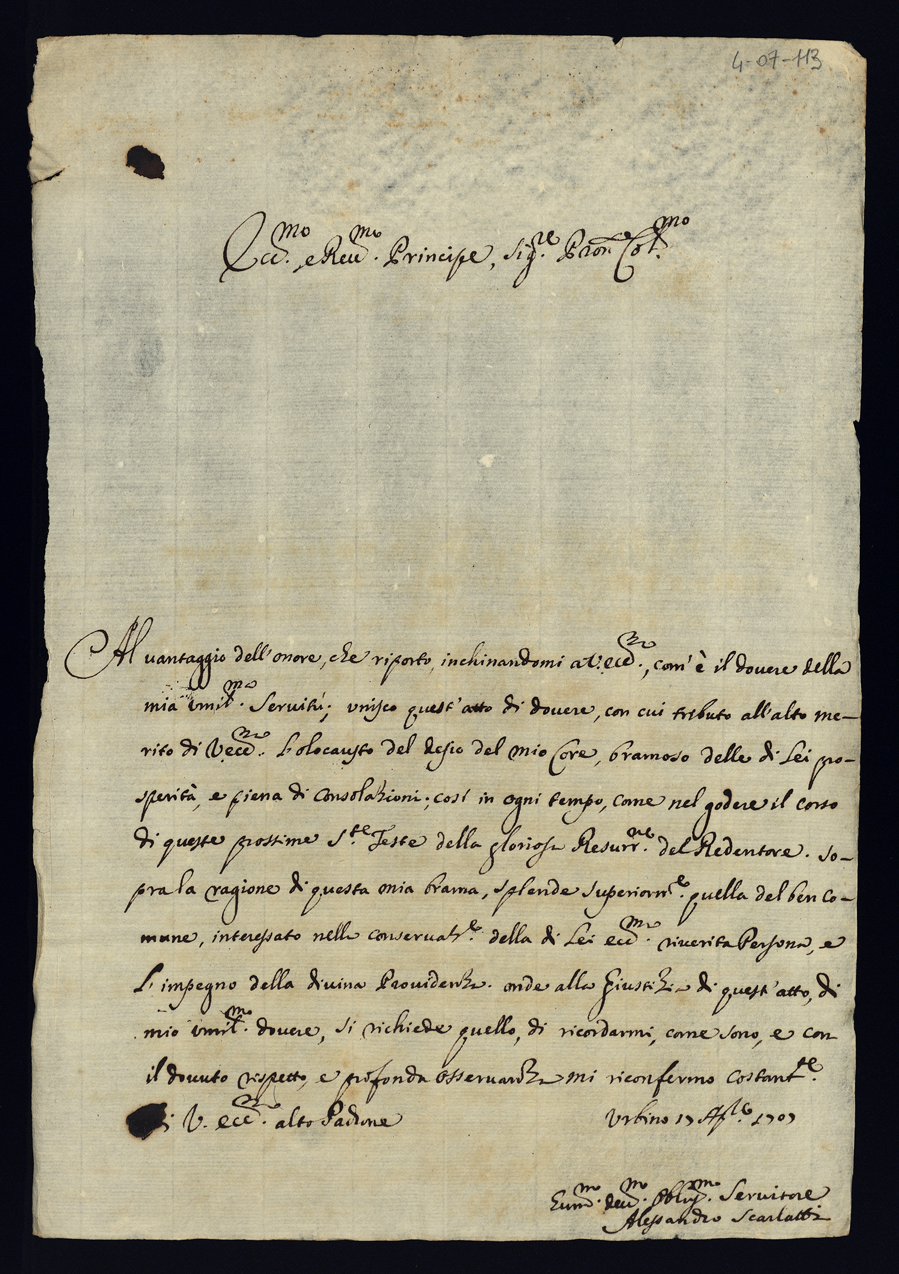 4-07-113
Ecc.mo e Reu.mo Principe, Sig.re Pron Col.mo
Al uantaggio dell'onore, che riporto, inchinandomi a V. ecc.za, com'è il douere della
mia Vmil.ma Seruitù; vnisco quest'atto di douere, con cui tributo all'alto me-
rito di V. ecc.za L'olocausto del desio del mio Core, bramoso delle di Lei pro-
sperità, e piena di Consolazioni; così in ogni tempo, come nel godere il corso
di queste prossime S.te Feste della gloriosa Resurr.ne del Redentore. So-
pra la ragione di questa mia brama, splende Superiorm.e quella del ben co-
mune, interessato nella conseruat.e della di Lei ecc.ma riuerita Persona, e
L'impegno della diuina Prouidenza. onde alla Giustizia di quest'atto, di
mio Vmil.mo douere, si richiede quello, di ricordarmi, come sono, e con
il douuto rispetto, e profonda osseruanza mi riconfermo costant.te
i V. ecc.za alto Padrone Vrbino 17 Aple 1707
Vmil.mo deu.mo Oblig.mo Seruitore
Alessandro Scarlatti